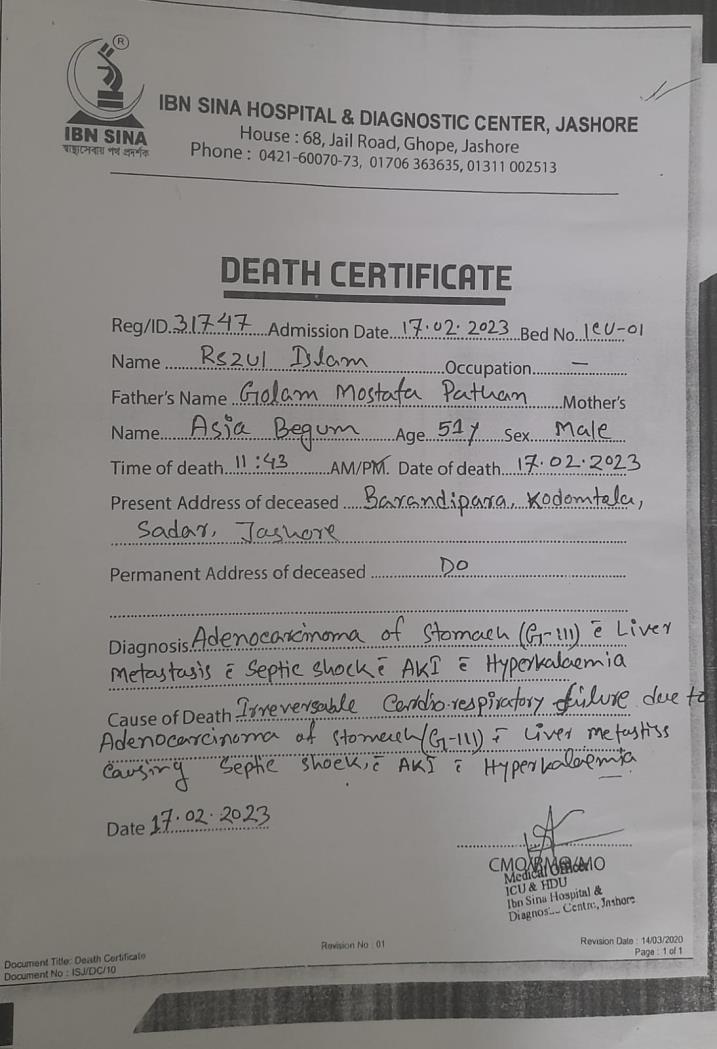 ®
IBN SINA
স্বাস্থ্যসেবায় পথ প্রদর্শক
IBN SINA HOSPITAL & DIAGNOSTIC CENTER, JASHORE
House : 68, Jail Road, Ghope, Jashore
Phone : 0421-60070-73, 01706 363635, 01311 002513
DEATH CERTIFICATE
Reg/ID. 31747 Admission Date. 17.02.2023 Bed No. ICU-01
Name Rezul Islam Occupation. —
Father's Name Golam Mostafa Pathan Mother's
Name. Asia Begum Age 51y Sex Male
Time of death. 11:43 AM/PM. Date of death. 17.02.2023
Present Address of deceased Barandipara, Kodomtala,
Sadar, Jashore
Permanent Address of deceased DO
Diagnosis. Adenocarcinoma of Stomach (G-III) c̄ Liver
Metastasis c̄ Septic shock c̄ AKI c̄ Hyperkalaemia
Cause of Death Irreversable Cardio-respiratory failure due to
Adenocarcinoma of stomach (G-III) c̄ Liver metastiss
causing Septic shock, c̄ AKI c̄ Hyperkalaemia
Date 17.02.2023
CMO/RMO/MO
Medical Officer
ICU & HDU
Ibn Sina Hospital &
Diagnos... Centre, Jashore
Document Title: Death Certificate
Document No : ISJ/DC/10
Revision No : 01
Revision Date : 14/03/2020
Page : 1 of 1